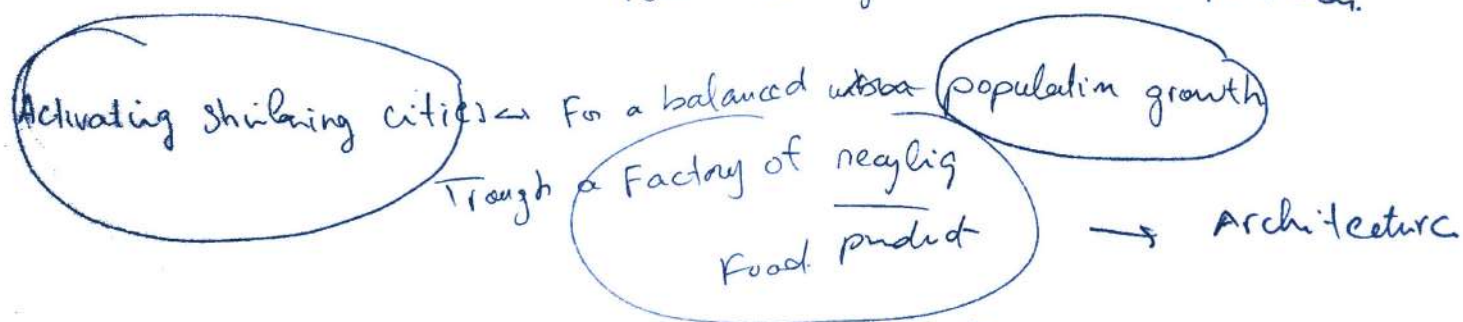 Activating shrinking cities For a balanced population growth
Trough a Factory of
Food product → Architecture